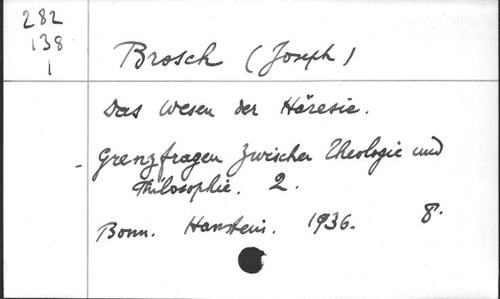 282
138
1
Brosch (Joseph)
Das Wesen der Häresie.
- Grenzfragen zwischen Theologie und
Philosophie. 2.
Bonn. Hanstein. 1936. 8°.